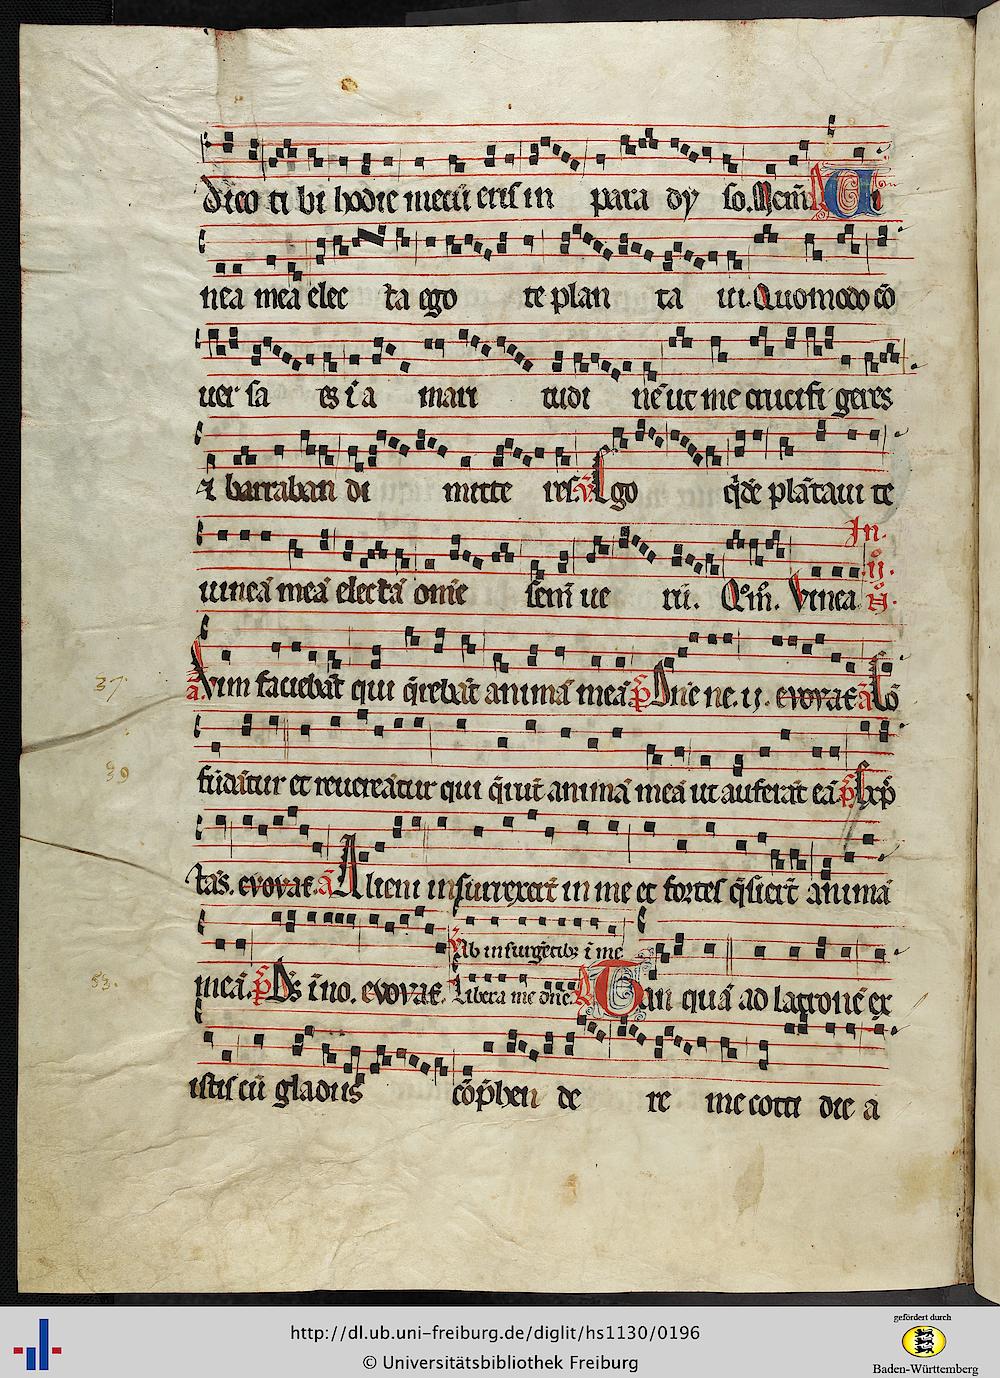 dico ti bi hodie mecū eris in para dy so. Mem̄. Ui
nea mea elec ta ego te plan ta ui. Quomodo cō
uer sa es ī a mari tudi nē ut me crucifi geres
⁊ barraban di mitte res. v̄. Ego q̄dē plātaui te
uineā meā electā om̄e semē ue rū. Q̊m̊. Vinea
In.
ij.
N̊.
ā. Vim faciebāt qui q̄rebāt animā meā. p̄s. Dn̄e ne. ij. evovae. ā. Cō
37
fūdātur et reuereātur qui q̄rūt animā meā ut auferāt eā. p̄s. Exp̄
39
tās. evovae. ā. Alieni insurrexerūt in me et fortes q̄sierūt animā
meā. p̄s. Ds̄ ī no. evovae.
53.
v̄. Ab insurgētibꝫ ī me
Libera me dn̄e. R̄. Tan quā ad latronē ex
istis cū gladiis cōp̄hen de re me cotti die a
http://dl.ub.uni-freiburg.de/diglit/hs1130/0196
© Universitätsbibliothek Freiburg
gefördert durch
Baden-Württemberg